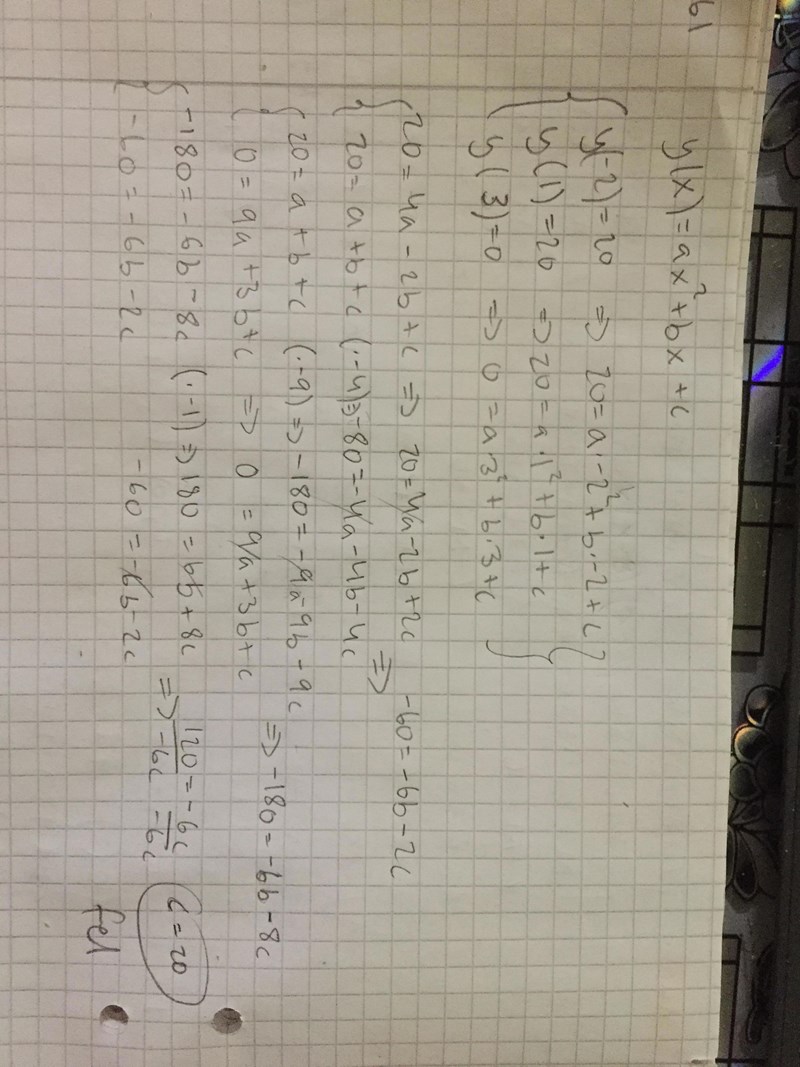 61
y(x)=ax²+bx+c
y(-2)=20 => 20=a·-2²+b·-2+c
y(1)=20 => 20=a·1²+b·1+c
y(3)=0 => 0=a·3²+b·3+c
20=4a-2b+c => 20=4a-2b+2c -60=-6b-2c
20=a+b+c (·-4)=>-80=-4a-4b-4c =>
20=a+b+c (·-9)=>-180=-9a-9b-9c => -180=-6b-8c
0=9a+3b+c => 0=9a+3b+c
-180=-6b-8c (·-1)=>180=6b+8c 120=-6c
-60=-6b-2c -60=-6b-2c => -6c -6c c=20
fel